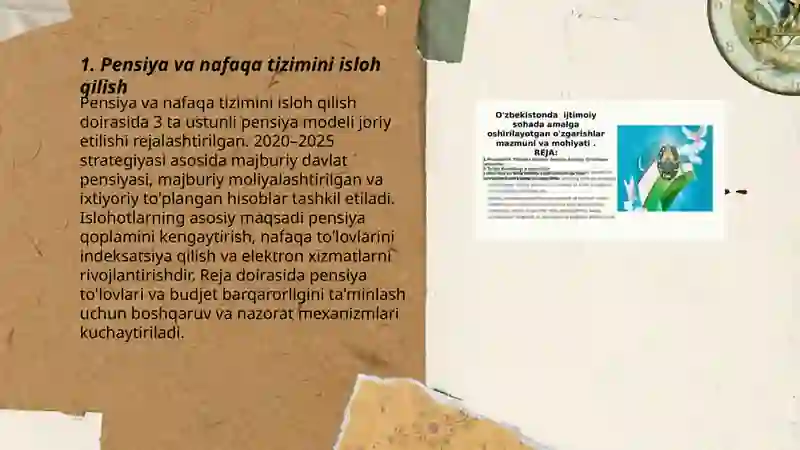 1. Pensiya va nafaqa tizimini isloh
qilish
Pensiya va nafaqa tizimini isloh qilish
doirasida 3 ta ustunli pensiya modeli joriy
etilishi rejalashtirilgan. 2020–2025
strategiyasi asosida majburiy davlat
pensiyasi, majburiy moliyalashtirilgan va
ixtiyoriy to'plangan hisoblar tashkil etiladi.
Islohotlarning asosiy maqsadi pensiya
qoplamini kengaytirish, nafaqa to'lovlarini
indeksatsiya qilish va elektron xizmatlarni
rivojlantirishdir. Reja doirasida pensiya
to'lovlari va budjet barqarorligini ta'minlash
uchun boshqaruv va nazorat mexanizmlari
kuchaytiriladi.
O'zbekistonda ijtimoiy
sohada amalga
oshirilayotgan o'zgarishlar
mazmuni va mohiyati .
REJA: